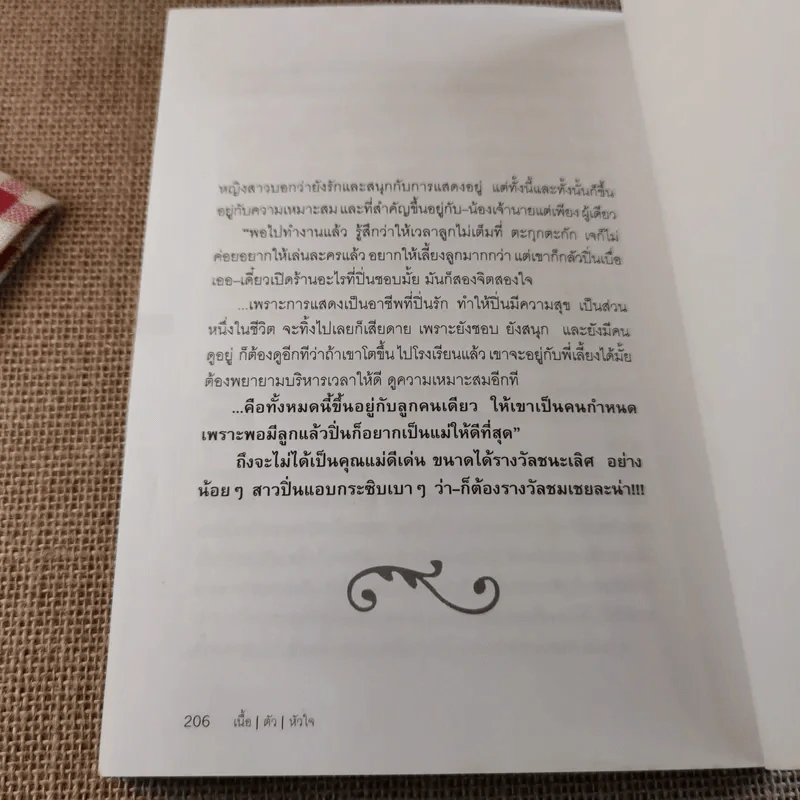 หญิงสาวบอกว่ายังรักและสนุกกับการแสดงอยู่ แต่ทั้งนี้และทั้งนั้นก็ขึ้น
อยู่กับความเหมาะสม และที่สำคัญขึ้นอยู่กับ-น้องเจ้านายแต่เพียง ผู้เดียว
“พอไปทำงานแล้ว รู้สึกว่าให้เวลาลูกไม่เต็มที่ ตะกุกตะกัก เจก็ไม่
ค่อยอยากให้เล่นละครแล้ว อยากให้เลี้ยงลูกมากกว่า แต่เขาก็กลัวปิ่นเบื่อ
เออ-เดี๋ยวเปิดร้านอะไรที่ปิ่นชอบมั้ย มันก็สองจิตสองใจ
...เพราะการแสดงเป็นอาชีพที่ปิ่นรัก ทำให้ปิ่นมีความสุข เป็นส่วน
หนึ่งในชีวิต จะทิ้งไปเลยก็เสียดาย เพราะยังชอบ ยังสนุก และยังมีคน
ดูอยู่ ก็ต้องดูอีกทีว่าถ้าเขาโตขึ้น ไปโรงเรียนแล้ว เขาจะอยู่กับพี่เลี้ยงได้มั้ย
ต้องพยายามบริหารเวลาให้ดี ดูความเหมาะสมอีกที
...คือทั้งหมดนี้ขึ้นอยู่กับลูกคนเดียว ให้เขาเป็นคนกำหนด
เพราะพอมีลูกแล้วปิ่นก็อยากเป็นแม่ให้ดีที่สุด”
ถึงจะไม่ได้เป็นคุณแม่ดีเด่น ขนาดได้รางวัลชนะเลิศ อย่าง
น้อย ๆ สาวปิ่นแอบกระซิบเบา ๆ ว่า-ก็ต้องรางวัลชมเชยละน่า!!!
206 เนื้อ | ตัว | หัวใจ